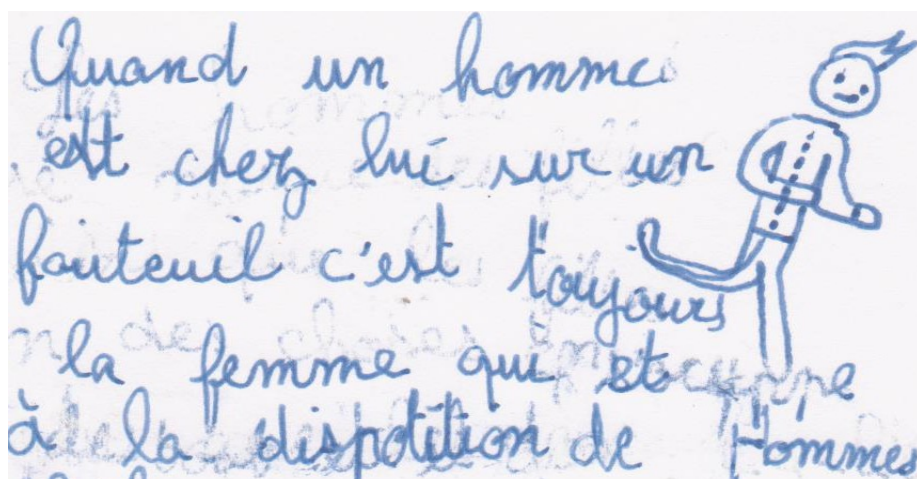 Quand un homme
est chez lui sur un
fauteuil c'est toujours
la femme qui et
à la dispotition de l'Hommes